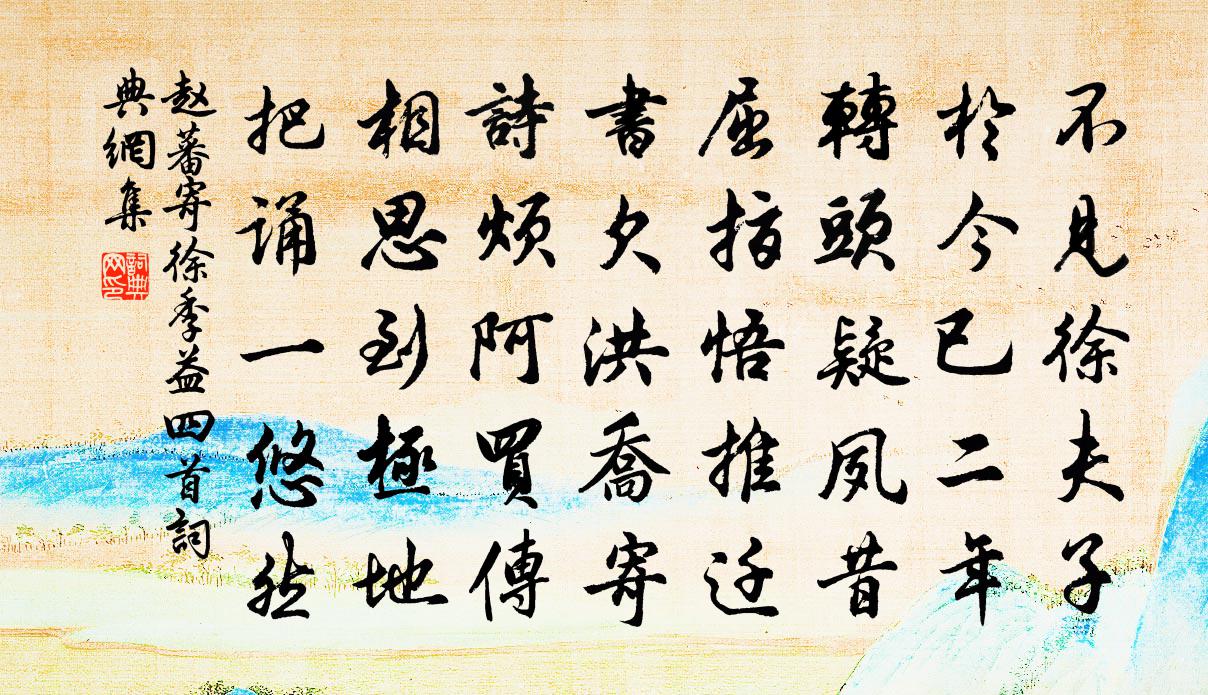 不見徐夫子
於今已二年
轉頭疑夙昔
屈指悟推迁
書欠洪喬寄
詩煩阿買傳
相思到極地
把誦一悠然
赵蕃寄徐季益四首詞
典網集
詞典
网印